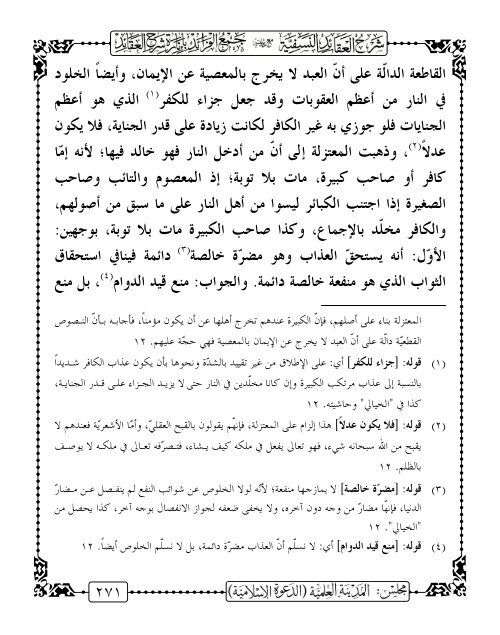 شرح العقائد النسفية مع جمع الفرائد بإنارة شرح العقائد
القاطعة الدالّة على أنّ العبد لا يخرج بالمعصية عن الإيمان، وأيضاً الخلود
في النار من أعظم العقوبات وقد جعل جزاء للكفر(١) الذي هو أعظم
الجنايات فلو جوزي به غير الكافر لكانت زيادة على قدر الجناية، فلا يكون
عدلاً(٢)، وذهبت المعتزلة إلى أنّ من أدخل النار فهو خالد فيها؛ لأنه إمّا
كافر أو صاحب كبيرة، مات بلا توبة؛ إذ المعصوم والتائب وصاحب
الصغيرة إذا اجتنب الكبائر ليسوا من أهل النار على ما سبق من أصولهم،
والكافر مخلّد بالإجماع، وكذا صاحب الكبيرة مات بلا توبة، بوجهين:
الأوّل: أنه يستحقّ العذاب وهو مضرّة خالصة(٣) دائمة فينافي استحقاق
الثواب الذي هو منفعة خالصة دائمة. والجواب: منع قيد الدوام(٤)، بل منع
المعتزلة بناء على أصلهم، فإنّ الكبيرة عندهم تخرج أهلها عن أن يكون مؤمناً، فأجابه بأنّ النصوص
القطعيّة دالّة على أنّ العبد لا يخرج عن الإيمان بالمعصية فهي حجّة عليهم. ١٢
(١) قوله: [جزاء للكفر] أي: على الإطلاق من غير تقييد بالشدّة ونحوها بأن يكون عذاب الكافر شديداً
بالنسبة إلى عذاب مرتكب الكبيرة وإن كانا مخلّدين في النار حتى لا يزيد الجزاء على قدر الجناية،
كذا في "الخيالي" وحاشيته. ١٢
(٢) قوله: [فلا يكون عدلاً] هذا إلزام على المعتزلة، فإنّهم يقولون بالقبح العقليّ، وأمّا الأشعريّة فعندهم لا
يقبح من الله سبحانه شيء، فهو تعالى يفعل في ملكه كيف يشاء، فتصرّفه تعالى في ملكه لا يوصف
بالظلم. ١٢
(٣) قوله: [مضرّة خالصة] لا يمازجها منفعة؛ لأنّه لولا الخلوص عن شوائب النفع لم ينفصل عن مضارّ
الدنيا، فإنّها مضارّ من وجه دون آخره، ولا يخفى ضعفه لجواز الانفصال بوجه آخر، كذا يحصل من
"الخيالي". ١٢
(٤) قوله: [منع قيد الدوام] أي: لا نسلّم أنّ العذاب مضرّة دائمة، بل لا نسلّم الخلوص أيضاً. ١٢
مجلس: المدينة العلمية (الدعوة الإسلامية)
٢٧١